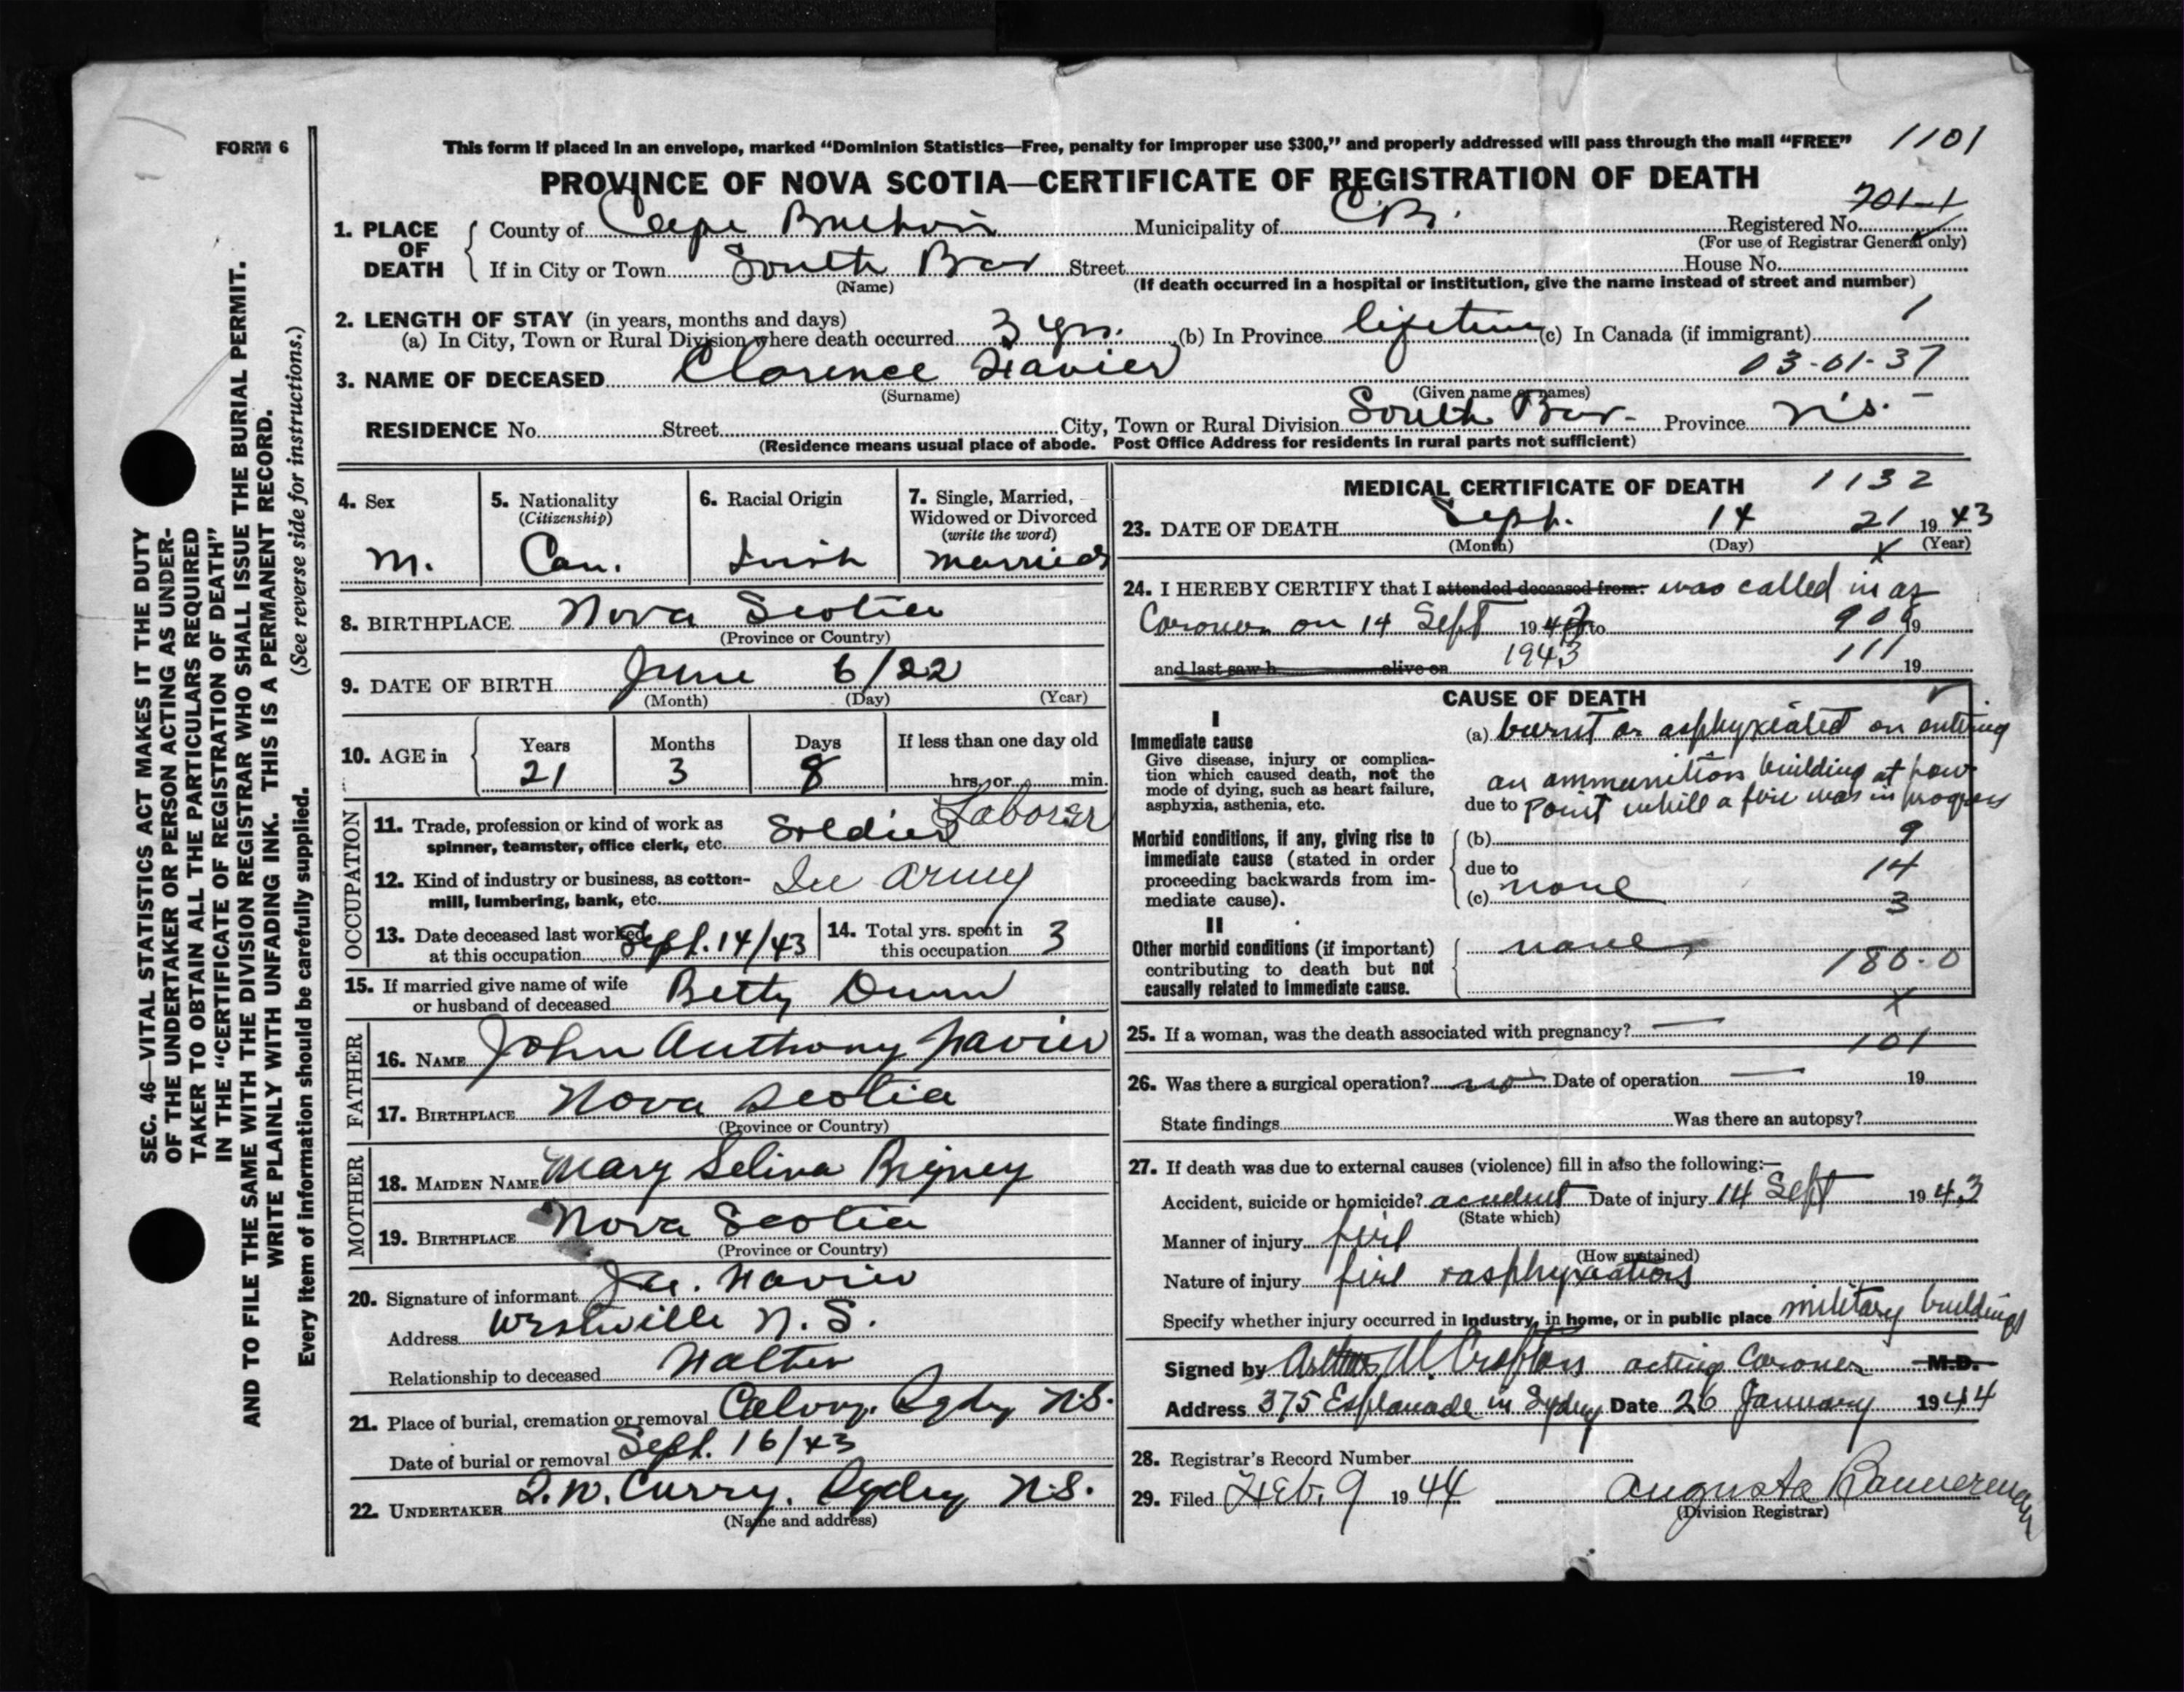 FORM 6
This form if placed in an envelope, marked “Dominion Statistics—Free, penalty for improper use $300,” and properly addressed will pass through the mail “FREE” 1101
PROVINCE OF NOVA SCOTIA—CERTIFICATE OF REGISTRATION OF DEATH
701-1
1. PLACE OF DEATH County of Cape Breton Municipality of C.B. Registered No.
(For use of Registrar General only)
If in City or Town South Bar Street House No.
(Name) (If death occurred in a hospital or institution, give the name instead of street and number)
2. LENGTH OF STAY (in years, months and days)
(a) In City, Town or Rural Division where death occurred 3 yrs. (b) In Province lifetime (c) In Canada (if immigrant)
3. NAME OF DECEASED Clarence 03-01-37
(Surname) (Given name or names)
RESIDENCE No. Street City, Town or Rural Division South Bar Province N.S.
(Residence means usual place of abode. Post Office Address for residents in rural parts not sufficient)
4. Sex M.
5. Nationality (Citizenship) Can.
6. Racial Origin Irish
7. Single, Married, Widowed or Divorced (write the word) married
8. BIRTHPLACE Nova Scotia
(Province or Country)
9. DATE OF BIRTH June 6/22
(Month) (Day) (Year)
10. AGE in Years Months Days If less than one day old
21 3 8 hrs. or min.
OCCUPATION
11. Trade, profession or kind of work as
spinner, teamster, office clerk, etc. Soldier Laborer
12. Kind of industry or business, as cotton-
mill, lumbering, bank, etc. In army
13. Date deceased last worked
at this occupation Sept. 14/43
14. Total yrs. spent in
this occupation 3
15. If married give name of wife
or husband of deceased Betty Dunn
FATHER
16. NAME John Anthony
17. BIRTHPLACE Nova Scotia
(Province or Country)
MOTHER
18. MAIDEN NAME Mary Selina Rigney
19. BIRTHPLACE Nova Scotia
(Province or Country)
20. Signature of informant
Address Westville N.S.
Relationship to deceased
21. Place of burial, cremation or removal N.S.
Date of burial or removal Sept. 16/43
22. UNDERTAKER Curry. N.S.
(Name and address)
MEDICAL CERTIFICATE OF DEATH 1132
23. DATE OF DEATH Sept. 14 21 1943
(Month) (Day) (Year)
24. I HEREBY CERTIFY that I attended deceased from: was called in as
Coroner on 14 Sept 194 to 908 19
and last saw h alive on 1943 111 19
CAUSE OF DEATH
I
Immediate cause
Give disease, injury or complica-
tion which caused death, not the
mode of dying, such as heart failure,
asphyxia, asthenia, etc.
(a) burnt or asphyxiated on entering
an ammunition building at
due to Point while a fire was in progress
Morbid conditions, if any, giving rise to
immediate cause (stated in order
proceeding backwards from im-
mediate cause).
(b) 9
due to 14
(c) none 3
II
Other morbid conditions (if important)
contributing to death but not
causally related to immediate cause.
none
186-0
25. If a woman, was the death associated with pregnancy? —
101
26. Was there a surgical operation? no Date of operation — 19
State findings Was there an autopsy?
27. If death was due to external causes (violence) fill in also the following:—
Accident, suicide or homicide? accident Date of injury 14 Sept 1943
(State which)
Manner of injury fire
(How sustained)
Nature of injury fire asphyxiation
Specify whether injury occurred in industry, in home, or in public place military buildings
Signed by Crofton acting Coroner M.D.
Address 375 Esplanade in Sydney Date 26 January 1944
28. Registrar's Record Number
29. Filed Feb. 9 1944 Augusta Bannerman
(Division Registrar)
SEC. 46—VITAL STATISTICS ACT MAKES IT THE DUTY
OF THE UNDERTAKER OR PERSON ACTING AS UNDER-
TAKER TO OBTAIN ALL THE PARTICULARS REQUIRED
IN THE “CERTIFICATE OF REGISTRATION OF DEATH”
AND TO FILE THE SAME WITH THE DIVISION REGISTRAR WHO SHALL ISSUE THE BURIAL PERMIT.
WRITE PLAINLY WITH UNFADING INK. THIS IS A PERMANENT RECORD.
Every item of information should be carefully supplied. (See reverse side for instructions.)